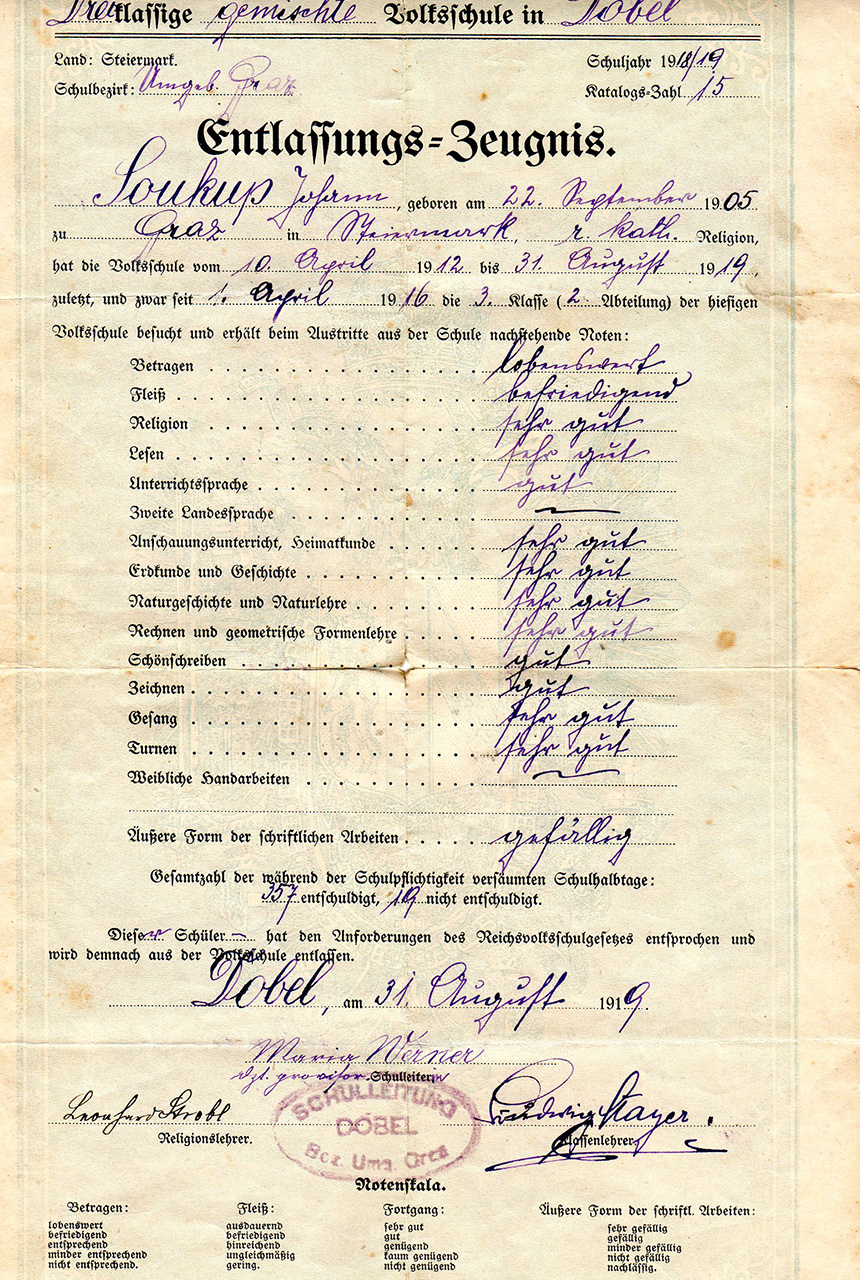 Dreiklassige gemischte Volksschule in Dobel
Land: Steiermark.
Schuljahr 1918/19
Schulbezirk: Umgeb. Graz
Katalogs-Zahl 15
Entlassungs-Zeugnis.
Soukup Johann, geboren am 22. September 1905
zu Graz in Steiermark, r. kath. Religion,
hat die Volksschule vom 10. April 1912 bis 31. August 1919,
zuletzt, und zwar seit 1. April 1916 die 3. Klasse (2. Abteilung) der hiesigen
Volksschule besucht und erhält beim Austritte aus der Schule nachstehende Noten:
Betragen lobenswert
Fleiß befriedigend
Religion sehr gut
Lesen sehr gut
Unterrichtssprache gut
Zweite Landessprache —
Anschauungsunterricht, Heimatkunde sehr gut
Erdkunde und Geschichte sehr gut
Naturgeschichte und Naturlehre sehr gut
Rechnen und geometrische Formenlehre sehr gut
Schönschreiben gut
Zeichnen gut
Gesang sehr gut
Turnen sehr gut
Weibliche Handarbeiten —
Äußere Form der schriftlichen Arbeiten gefällig
Gesamtzahl der während der Schulpflichtigkeit versäumten Schulhalbtage:
357 entschuldigt, 19 nicht entschuldigt.
Dieser Schüler — hat den Anforderungen des Reichsvolksschulgesetzes entsprochen und
wird demnach aus der Volksschule entlassen.
Dobel, am 31. August 1919.
Maria Werner
dzt. provisor. Schulleiterin
SCHULLEITUNG
DOBEL
Bez. Umg. Graz
Leonhard Strobl
Religionslehrer.
Ludwig Mayer.
Klassenlehrer
Notenskala.
Betragen:
lobenswert
befriedigend
entsprechend
minder entsprechend
nicht entsprechend.
Fleiß:
ausdauernd
befriedigend
hinreichend
ungleichmäßig
gering.
Fortgang:
sehr gut
gut
genügend
kaum genügend
nicht genügend
Äußere Form der schriftl. Arbeiten:
sehr gefällig
gefällig
minder gefällig
nicht gefällig
nachlässig.